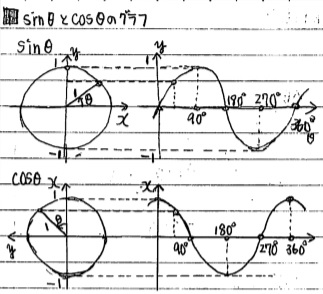 図 sinθとcosθのグラフ
sinθ
y
1
1
θ
x
-1
y
90°
180°
270°
360°
θ
-1
cosθ
x
1
1
θ
y
-1
x
90°
180°
270°
360°